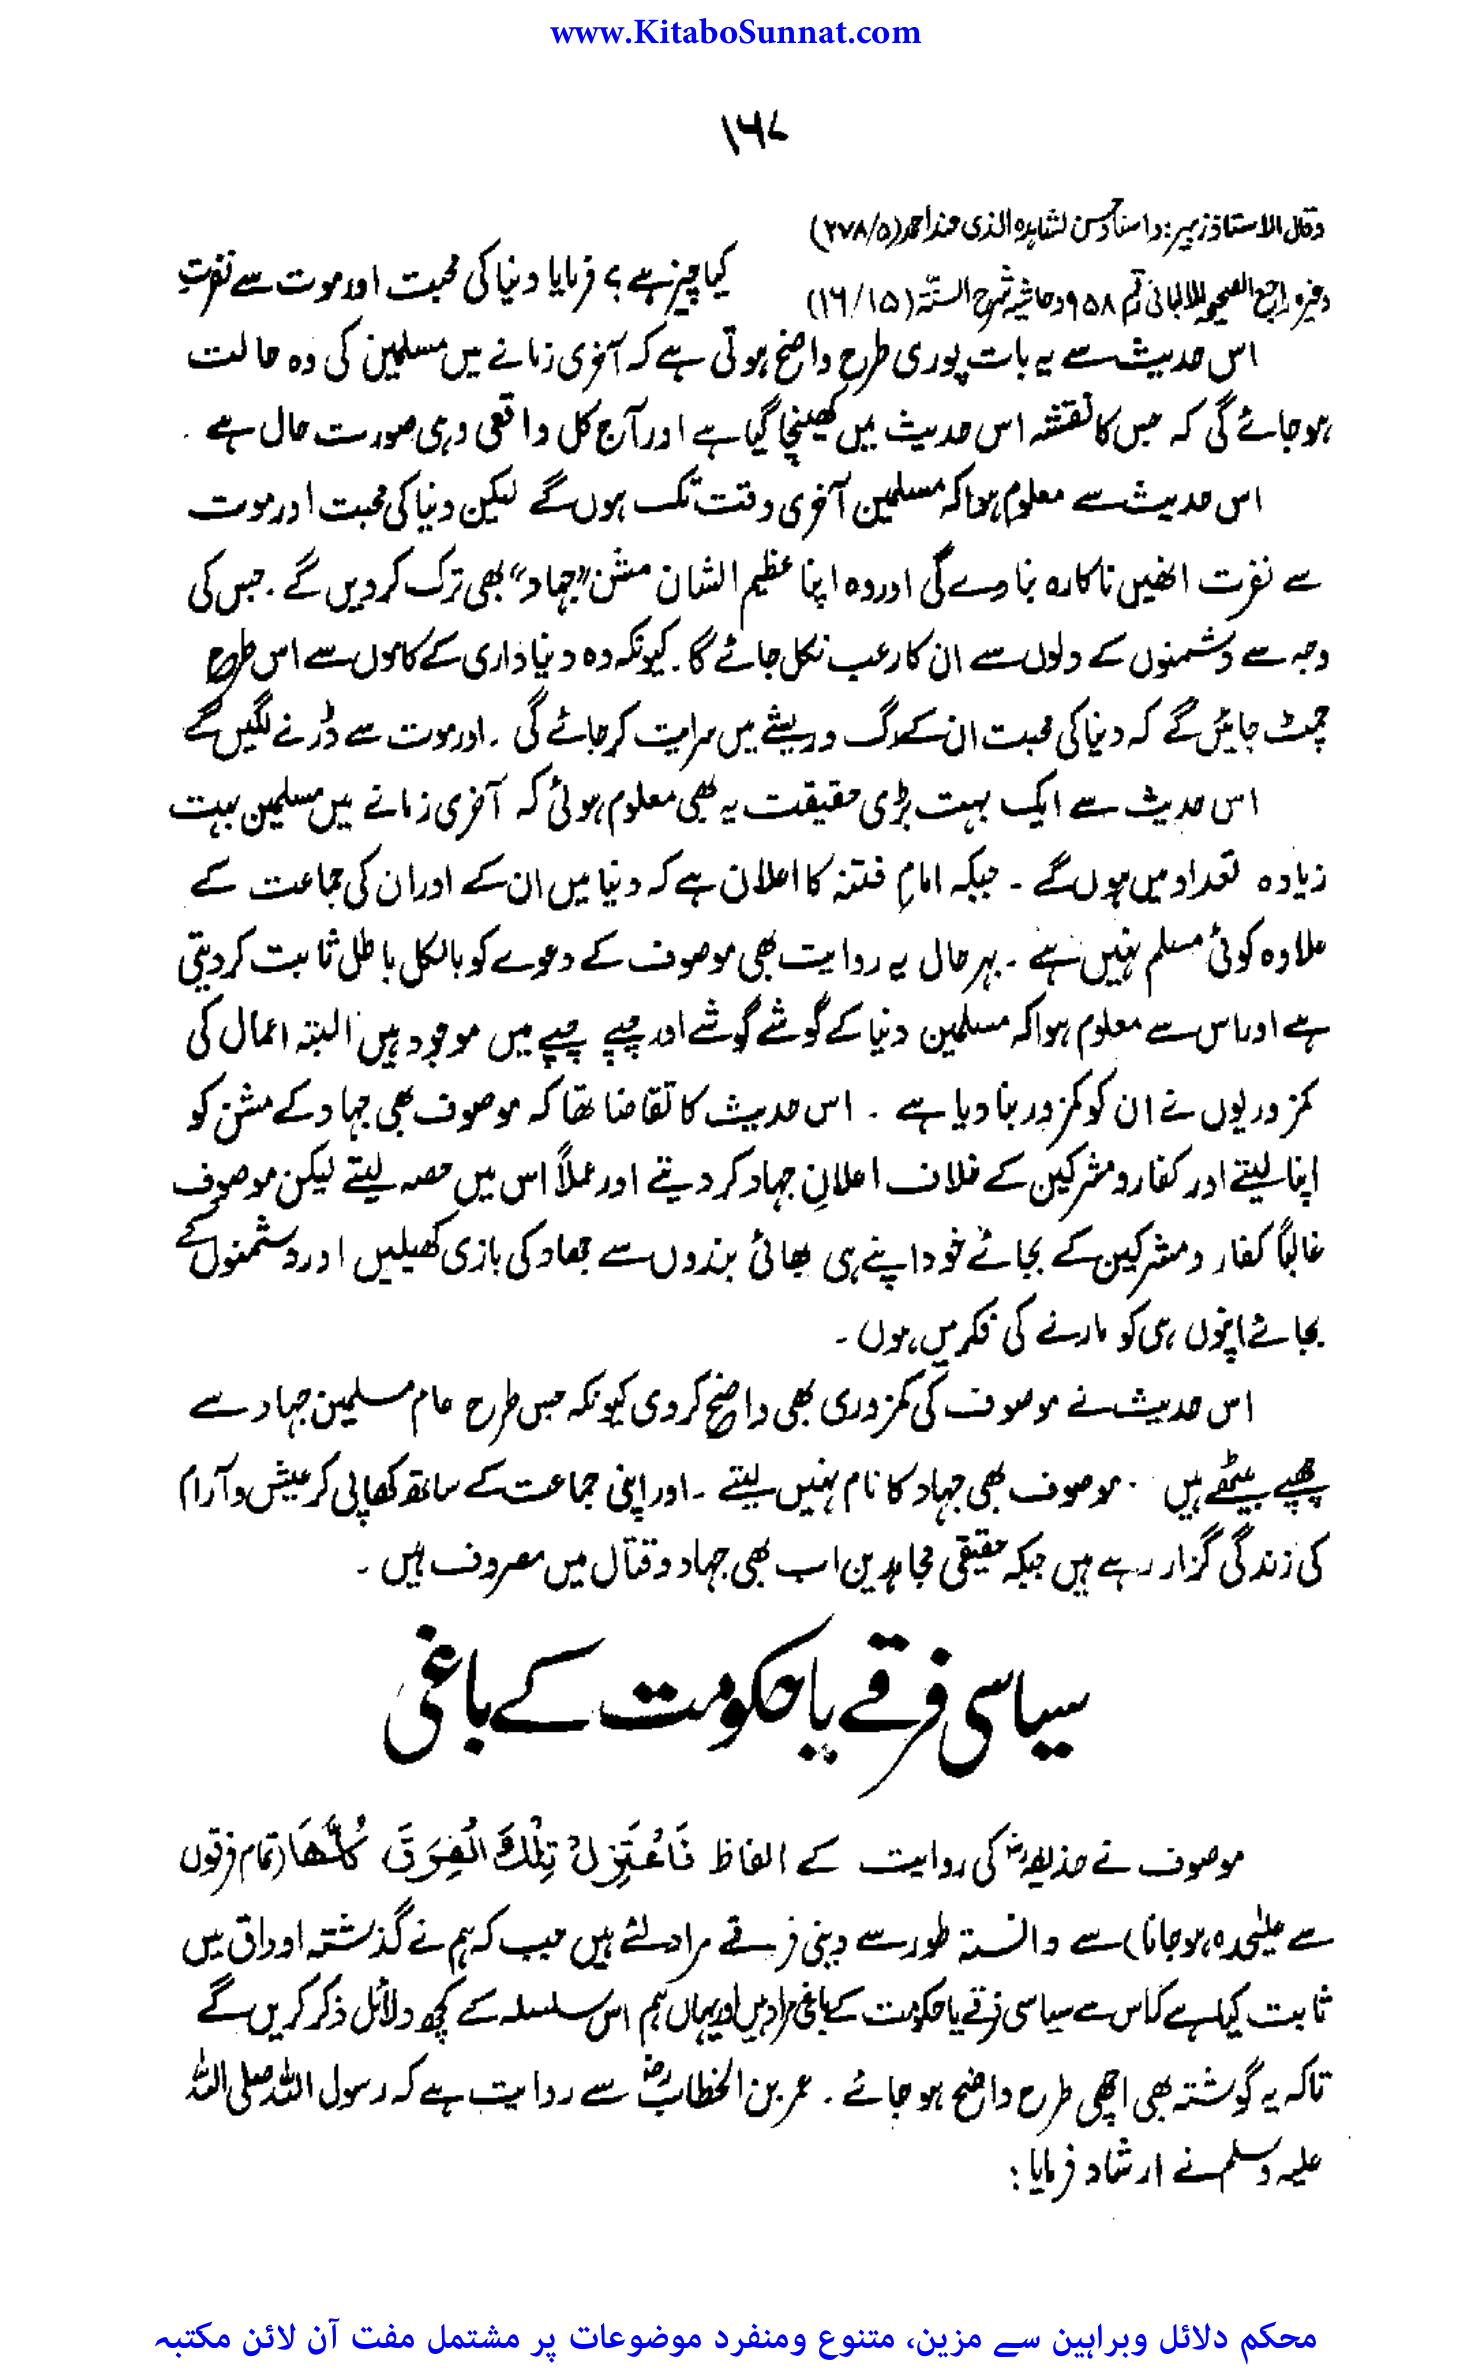 www.KitaboSunnat.com
۱۶۷
وقال الاستاذ زبیر: و اسناد حسن لشاہدہ الذی عند احمد (۲۷۸/۵)
وغیرہ راجع الصحیحہ للالبانی رقم ۹۵۸ وحاشیہ شرح السنّۃ (۱۶/۱۵)
کیا چیز ہے ؟ فرمایا دنیا کی محبت اور موت سے نفرت
اس حدیث سے یہ بات پوری طرح واضح ہوتی ہے کہ آخری زمانے میں مسلمین کی وہ حالت
ہو جائے گی کہ جس کا نقشہ اس حدیث میں کھینچا گیا ہے اور آج کل واقعی وہی صورت حال ہے ۔
اس حدیث سے معلوم ہوا کہ مسلمین آخری وقت تک ہوں گے لیکن دنیا کی محبت اور موت
سے نفرت انھیں ناکارہ بنا دے گی اور وہ اپنا عظیم الشان مشن "جہاد" بھی ترک کر دیں گے ۔ جس کی
وجہ سے دشمنوں کے دلوں سے ان کا رعب نکل جائے گا ۔ کیونکہ وہ دنیا داری کے کاموں سے اس طرح
چمٹ جائیں گے کہ دنیا کی محبت ان کے رگ و ریشے میں سرایت کر جائے گی ۔ اور موت سے ڈرنے لگیں گے
اس حدیث سے ایک بہت بڑی حقیقت یہ بھی معلوم ہوئی کہ آخری زمانے میں مسلمین بہت
زیادہ تعداد میں ہوں گے ۔ جبکہ امامِ فتنہ کا اعلان ہے کہ دنیا میں ان کے اور ان کی جماعت کے
علاوہ کوئی مسلم نہیں ہے ۔ بہر حال یہ روایت بھی موصوف کے دعوے کو بالکل باطل ثابت کر دیتی
ہے اور اس سے معلوم ہوا کہ مسلمین دنیا کے گوشے گوشے اور چپے چپے میں موجود ہیں البتہ اعمال کی
کمزوریوں نے ان کو کمزور بنا دیا ہے ۔ اس حدیث کا تقاضا تھا کہ موصوف بھی جہاد کے مشن کو
اپنا لیتے اور کفار و مشرکین کے خلاف اعلانِ جہاد کر دیتے اور عملاً اس میں حصہ لیتے لیکن موصوف
غالباً کفار و مشرکین کے بجائے خود اپنے ہی بھائی بندوں سے جہاد کی بازی کھیلیں اور دشمنوں کے
بجائے اپنوں ہی کو مارنے کی فکر میں ہوں ۔
اس حدیث نے موصوف کی کمزوری بھی واضح کر دی کیونکہ جس طرح عام مسلمین جہاد سے
چھپے بیٹھے ہیں ۔ موصوف بھی جہاد کا نام نہیں لیتے ۔ اور اپنی جماعت کے ساتھ کھا پی کر عیش و آرام
کی زندگی گزار رہے ہیں جبکہ حقیقی مجاہدین اب بھی جہاد و قتال میں مصروف ہیں ۔
سیاسی فرقے یا حکومت کے باغی
موصوف نے حذیفہؓ کی روایت کے الفاظ فَاعْتَزِلْ تِلْكَ الْفِرَقَ كُلَّهَا (تمام فرقوں
سے علیٰحدہ ہو جانا) سے دانستہ طور سے دینی فرقے مراد لئے ہیں جب کہ ہم نے گذشتہ اوراق میں
ثابت کیا ہے کہ اس سے سیاسی فرقے یا حکومت کے باغی مراد ہیں اور یہاں ہم اس سلسلہ کے کچھ دلائل ذکر کریں گے
تاکہ یہ گوشتہ بھی اچھی طرح واضح ہو جائے ۔ عمر بن الخطابؓ سے روایت ہے کہ رسول اللہ صلی اللہ
علیہ وسلم نے ارشاد فرمایا :
محکم دلائل وبراہین سے مزین، متنوع ومنفرد موضوعات پر مشتمل مفت آن لائن مکتبہ